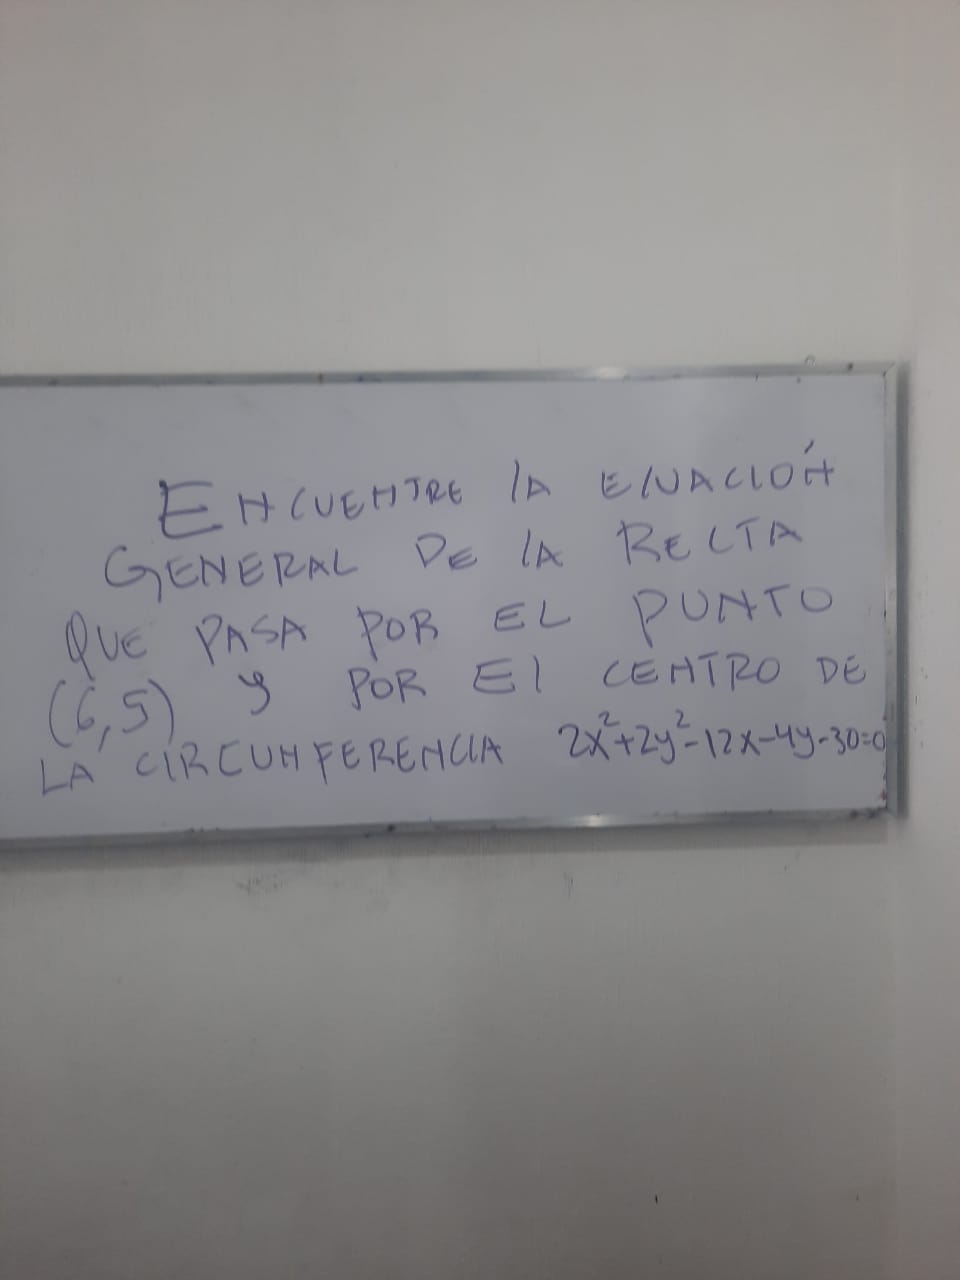 ENCUENTRE lA ECUACIÓN
GENERAL DE lA RECTA
QUE PASA POR EL PUNTO
(6,5) y POR El CENTRO DE
LA CIRCUNFERENCIA 2x²+2y²-12x-4y-30=0